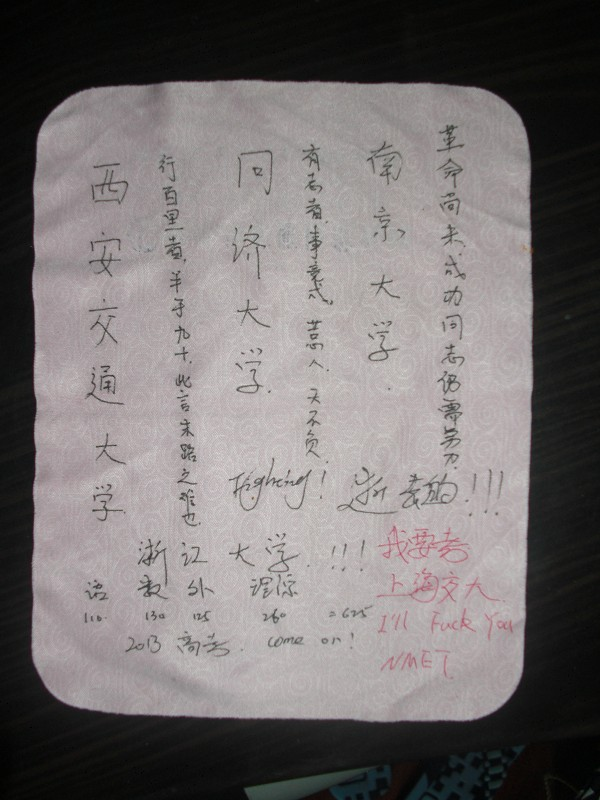 革命尚未成功同志仍需努力.
南京大学.
有志者,事竟成,苦心人,天不负.
同济大学.
行百里者,半于九十,此言末路之难也
西安交通大学
Fighting! !!!
浙江大学.!!!
语 数 外 理综
110 130 125 260 =625
2013 高考. come on!
我要考
上海交大.
I'll Fuck You
NMET.